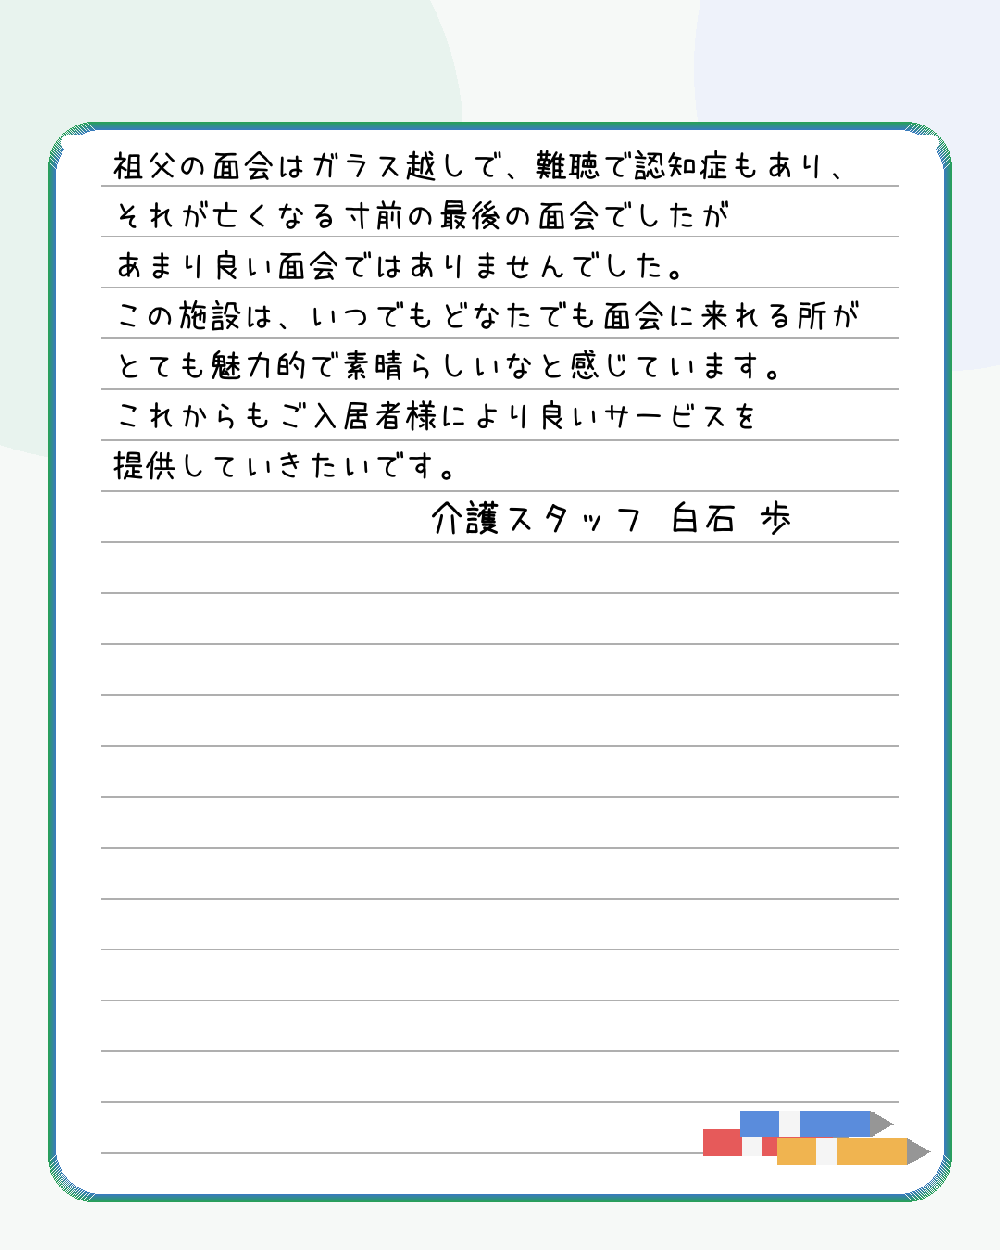 祖父の面会はガラス越しで、難聴で認知症もあり、
それが亡くなる寸前の最後の面会でしたが
あまり良い面会ではありませんでした。
この施設は、いつでもどなたでも面会に来れる所が
とても魅力的で素晴らしいなと感じています。
これからもご入居者様により良いサービスを
提供していきたいです。
介護スタッフ 白石 歩